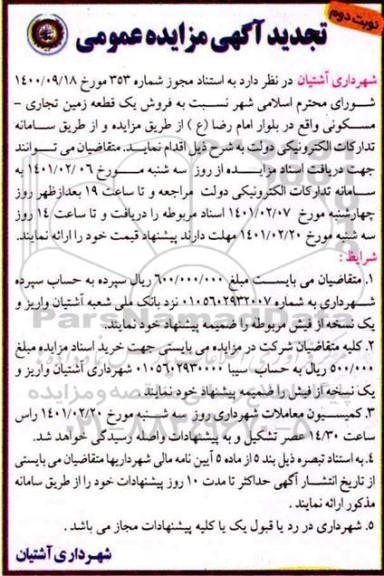 نوبت دوم
تجدید آگهی مزایده عمومی
شهرداری آشتیان در نظر دارد به استناد مجوز شماره ۳۵۳ مورخ ۱۴۰۰/۰۹/۱۸
شورای محترم اسلامی شهر نسبت به فروش یک قطعه زمین تجاری -
مسکونی واقع در بلوار امام رضا (ع) از طریق مزایده و از طریق سامانه
تدارکات الکترونیکی دولت به شرح ذیل اقدام نمایـد. متقاضیان می توانند
جهت دریافت اسناد مزایده از روز سه شنبه مورخ ۱۴۰۱/۰۲/۰۶ به
سامانه تدارکات الکترونیکی دولت مراجعه و تا ساعت ۱۹ بعدازظهر روز
چهارشنبه مورخ ۱۴۰۱/۰۲/۰۷ اسناد مربوطه را دریافت و تا ساعت ۱۴ روز
سه شنبه مورخ ۱۴۰۱/۰۲/۲۰ مهلت دارند پیشنهاد قیمت خود را ارائه نمایند.
شرایط :
۱. متقاضیان می بایست مبلغ ۶۰۰/۰۰۰/۰۰۰ ریال سپرده به حساب سپرده
شهرداری به شماره ۰۱۰۵۶۰۲۹۳۲۰۰۷ نزد بانک ملی شعبه آشتیان واریز و
یک نسخه از فیش مربوطه را ضمیمه پیشنهاد خود نمایند.
۲. کلیه متقاضیان شرکت در مزایده می بایستی جهت خرید اسناد مزایده مبلغ
۵۰۰/۰۰۰ ریال به حساب سیبا ۰۱۰۵۶۰۲۹۳۰۰۰۰ شهرداری آشتیان واریز و
یک نسخه از فیش را ضمیمه پیشنهاد خود نمایند
۳. کمیسیون معاملات شهرداری روز سه شنبه مورخ ۱۴۰۱/۰۲/۲۰ راس
ساعت ۱۴/۳۰ عصر تشکیل و به پیشنهادات واصله رسیدگی خواهد شد.
۴. به استناد تبصره ذیل بند ۵ از ماده ۵ آیین نامه مالی شهرداریها متقاضیان می بایستی
از تاریخ انتشار آگهی حداکثر تا مدت ۱۰ روز پیشنهادات خود را از طریق سامانه
مذکور ارائه نمایند .
۵. شهرداری در رد یا قبول یک یا کلیه پیشنهادات مجاز می باشد .
شهرداری آشتیان
ParsNamadData